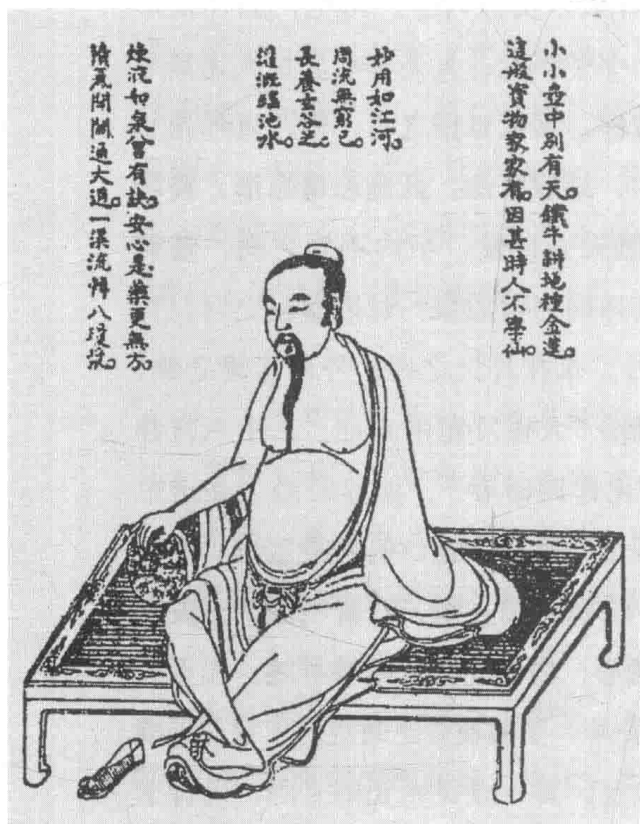 小小壺中別有天。鐵牛耕地種金蓮。
這般寳物家家有。因甚時人不學仙。
妙用如江河。
周流無窮已。
長養玄谷芝。
灌溉瑤池水。
煉液如泉曾有訣。安心是藥更無方。
陰風閉闔通大道。一渠流轉八瓊漿。